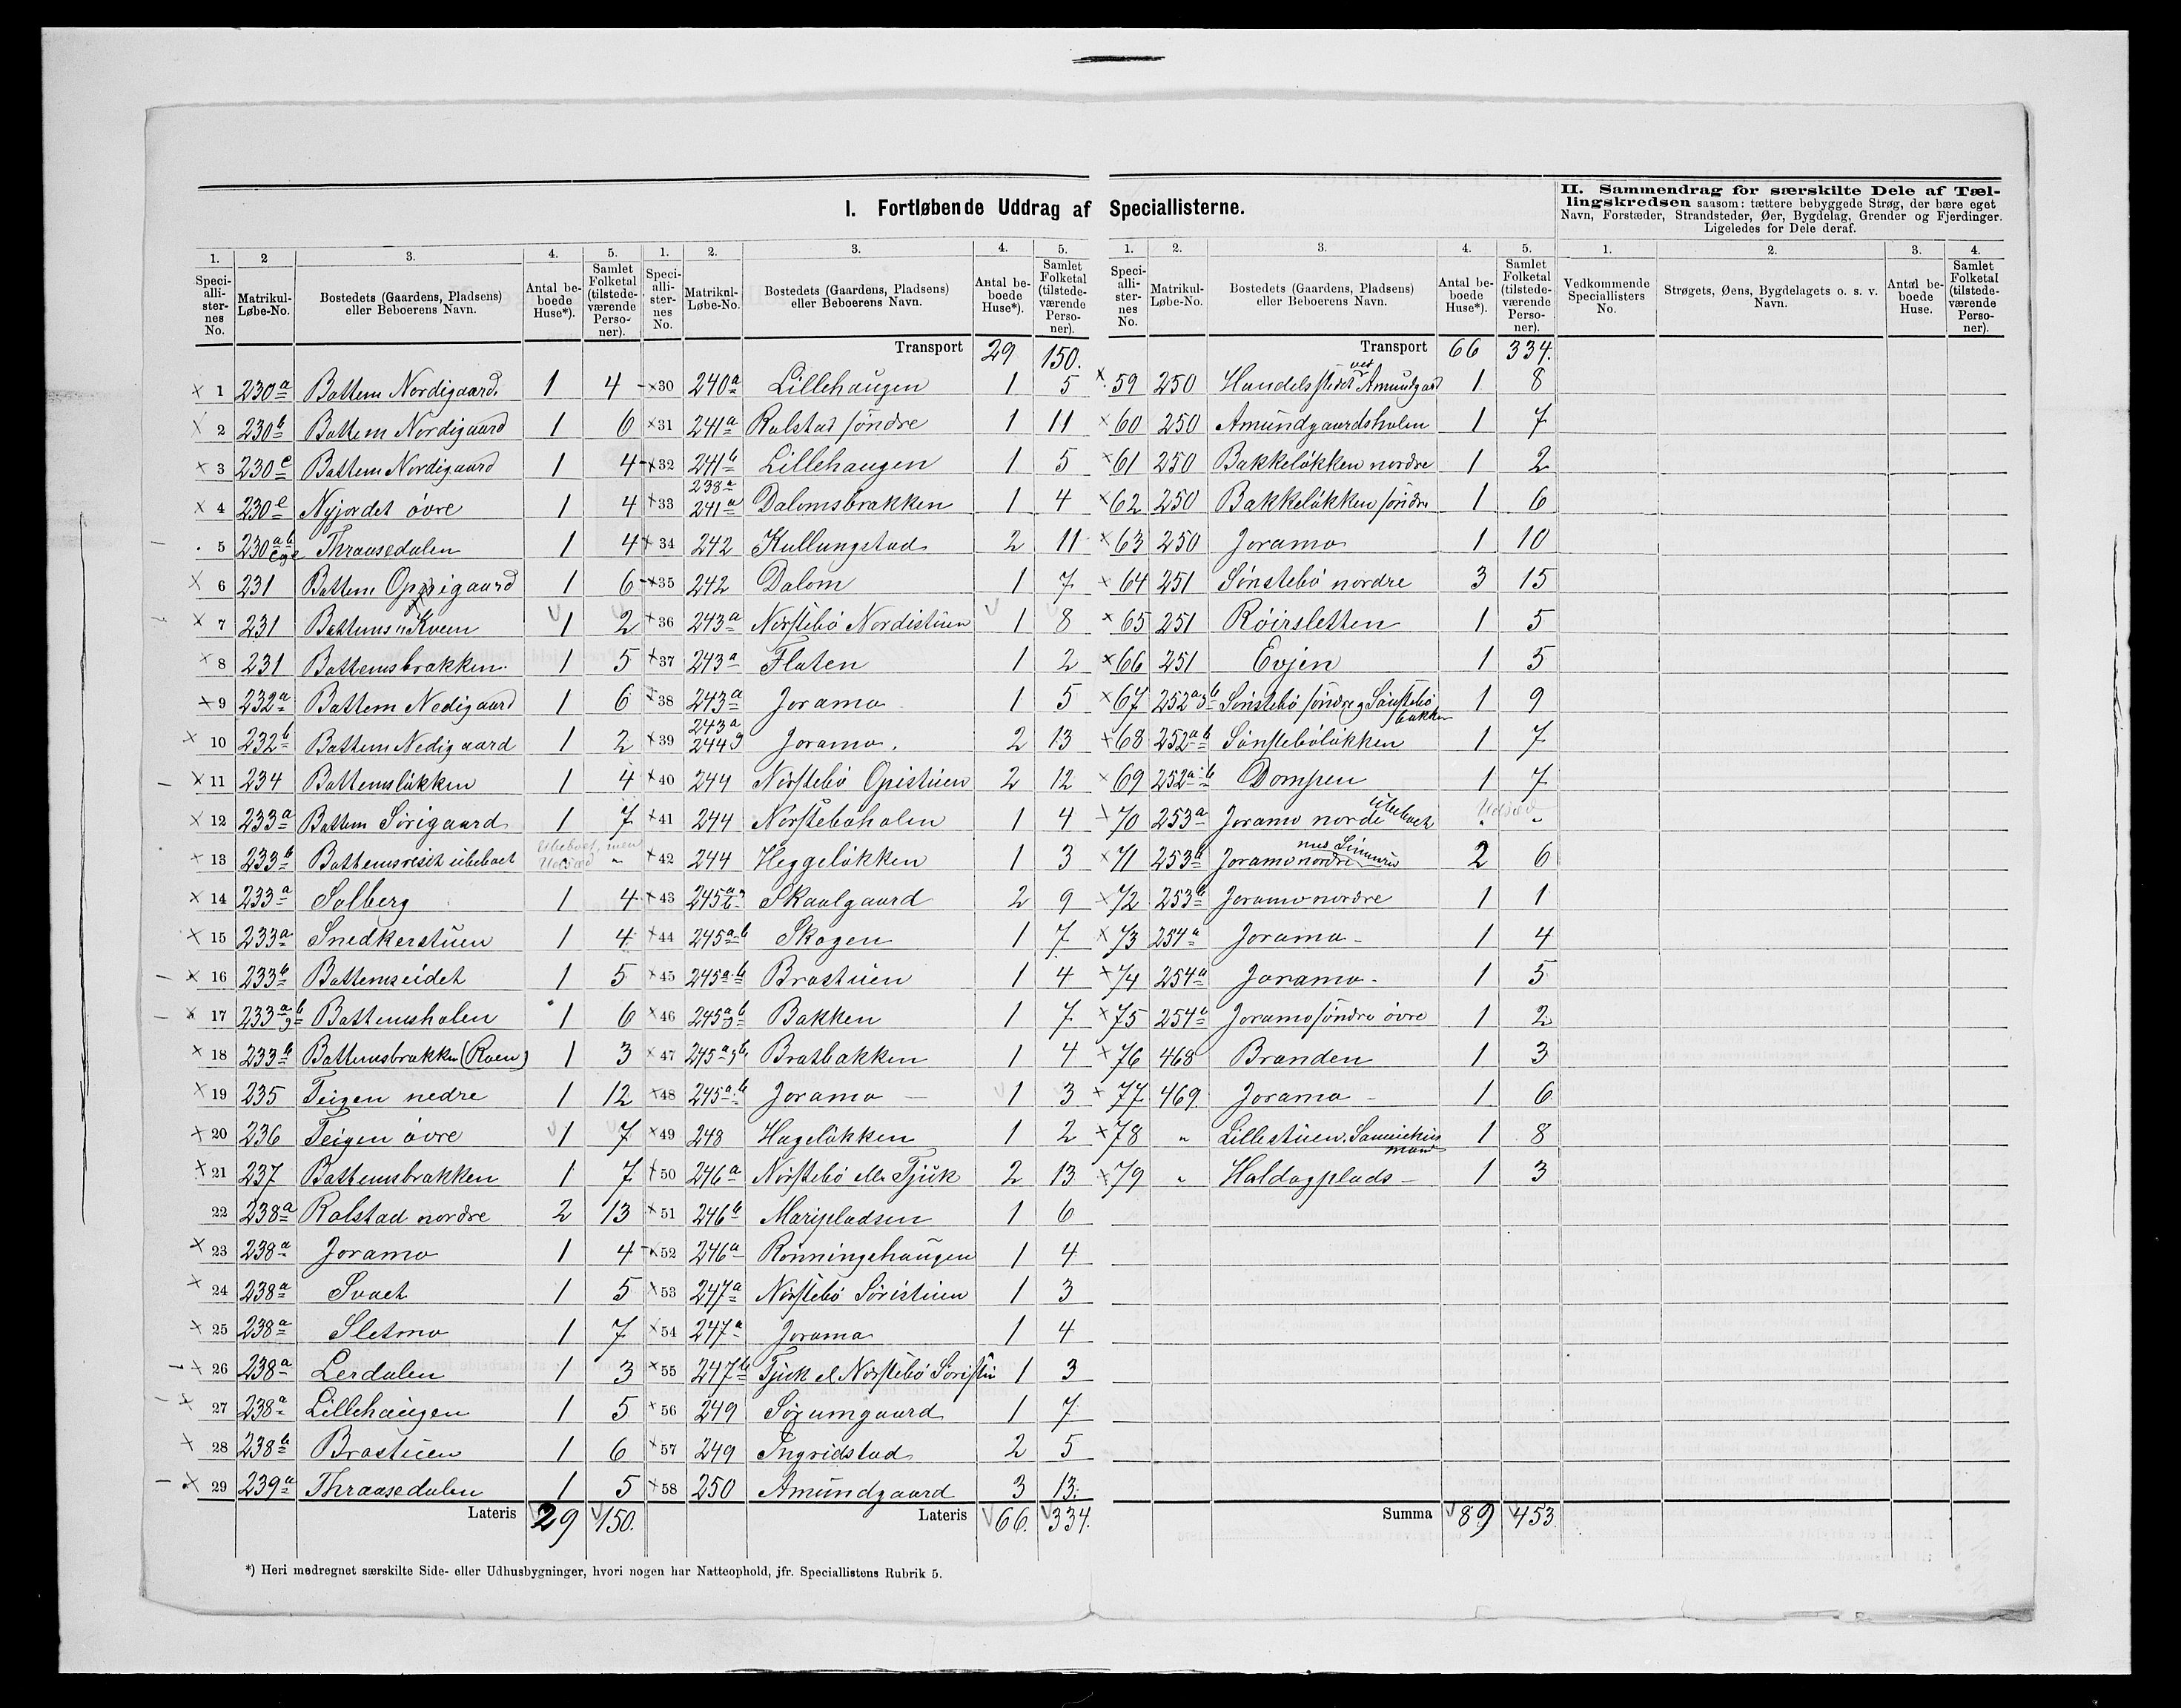 I. Fortløbende Uddrag af Speciallisterne.
II. Sammendrag for særskilte Dele af Tæl-
lingskredsen saasom: tættere bebyggede Strøg, der bære eget
Navn, Forstæder, Strandsteder, Øer, Bygdelag, Grender og Fjerdinger.
Ligeledes for Dele deraf.
1. 2 3. 4. 5.
Speciallisternes No. Matrikul-Løbe-No. Bostedets (Gaardens, Pladsens) eller Beboerens Navn. Antal beboede Huse*). Samlet Folketal (tilstedeværende Personer).
1 230a Bottem Nordigaard. 1 4
2 230b Bottem Nordigaard 1 6
3 230c Bottem Nordigaard 1 4
4 230e Nyjordet øvre 1 4
5 230ab c g e Thraasedalen 1 4
6 231 Bottem Oppigaard 1 6
7 231 Bottems Kvern 1 2
8 231 Bottemsbrækken. 1 5
9 232a Bottem Nedigaard 1 6
10 232b Bottem Nedigaard 1 2
11 234 Bottemsløkken 1 4
12 233a Bottem Sørigaard 1 7
13 233b Bottemsreset übeboet Ubeboet, men Udsæd „
14 233a Solberg 1 4
15 233a Snedkerstuen 1 4
16 233b Bottemseidet 1 5
17 233a g b Bottemsholen 1 6
18 233b Bottemsbrækken (Roen) 1 3
19 235 Teigen nedre 1 12
20 236 Teigen øvre 1 7
21 237 Bottemsbrækken 1 7
22 238a Rolstad nordre 2 13
23 238a Joramo 1 4
24 238a Svaet 1 5
25 238a Sletmo 1 7
26 238a Lerdalen 1 3
27 238a Lillehaugen 1 5
28 238b Brostuen 1 6
29 239a Thraasedalen 1 5
Lateris 29 150.
1. 2. 3. 4. 5.
Speciallisternes No. Matrikul-Løbe-No. Bostedets (Gaardens, Pladsens) eller Beboerens Navn. Antal beboede Huse*). Samlet Folketal (tilstedeværende Personer).
Transport 29 150.
30 240a Lillehaugen 1 5
31 241a Rolstad søndre 1 11
32 241b Lillehaugen 1 5
33 238a 241a Dalomsbrækken 1 4
34 242 Kullungstad 2 11
35 242 Dalom 1 7
36 243a Norstebø Nordistuen 1 8
37 243a Floten 1 2
38 243a Joramo 1 5
39 243a 244 g Joramo. 2 13
40 244 Norstebø Opistuen 2 12
41 244 Norstebøholen 1 4
42 244 Heggeløkken 1 3
43 245a g b Skaalgaard 2 9
44 245a b Skogen 1 7
45 245a b Brostuen 1 4
46 245a g b Bakken 1 7
47 245a g b Bratbakken 1 4
48 245a b Joramo 1 3
49 248 Hageløkken 1 2
50 246a Norstebø elle Tjuk 2 13
51 246b Maripladsen 1 6
52 246a Rønningehaugen 1 4
53 247a Norstebø Søristuen 1 3
54 247a Joramo 1 4
55 247b Tjuk el Norstebø Søristu 1 3
56 249 Sørumgaard 1 7
57 249 Ingridstad 2 5
58 250 Amundgaard 3 13.
Lateris 66. 334.
1. 2. 3. 4. 5.
Speciallisternes No. Matrikul-Løbe-No. Bostedets (Gaardens, Pladsens) eller Beboerens Navn. Antal beboede Huse*). Samlet Folketal (tilstedeværende Personer).
Transport 66 334.
59 250 Handelsstedet ved Amundgaard 1 8
60 250 Amundgaardsholen 1 7
61 250 Bakkeløkken nordre 1 2
62 250 Bakkeløkken søndre 1 6
63 250 Joramo 1 10
64 251 Sønstebø nordre 3 15
65 251 Røirsletten 1 5
66 251 Evjen 1 5
67 252a g b Sønstebø søndre g Sønstebø bakken 1 9
68 252a b Sønstebøløkken 1 7
69 252a b Dompen 1 7
70 253a Joramo norde übeboet Udsæd „ „
71 253b Joramo nordre 2 6
72 253b Joramo nordre 1 1
73 254a Joramo 1 4
74 254a Joramo 1 5
75 254a Joramo søndre øvre 1 2
76 468 Branden 1 3
77 469. Joramo 1 6
78 „ Lillestuen. 1 8
79 „ Haldogplads 1 3
Summa 89 453
1. 2. 3. 4.
Vedkommende Speciallisters No. Strøgets, Øens, Bygdelagets o. s. v. Navn. Antal beboede Huse. Samlet Folketal (tilstedeværende Personer).
*) Heri medregnet særskilte Side- eller Udhusbygninger, hvori nogen har Natteophold, jfr. Speciallistens Rubrik 5.